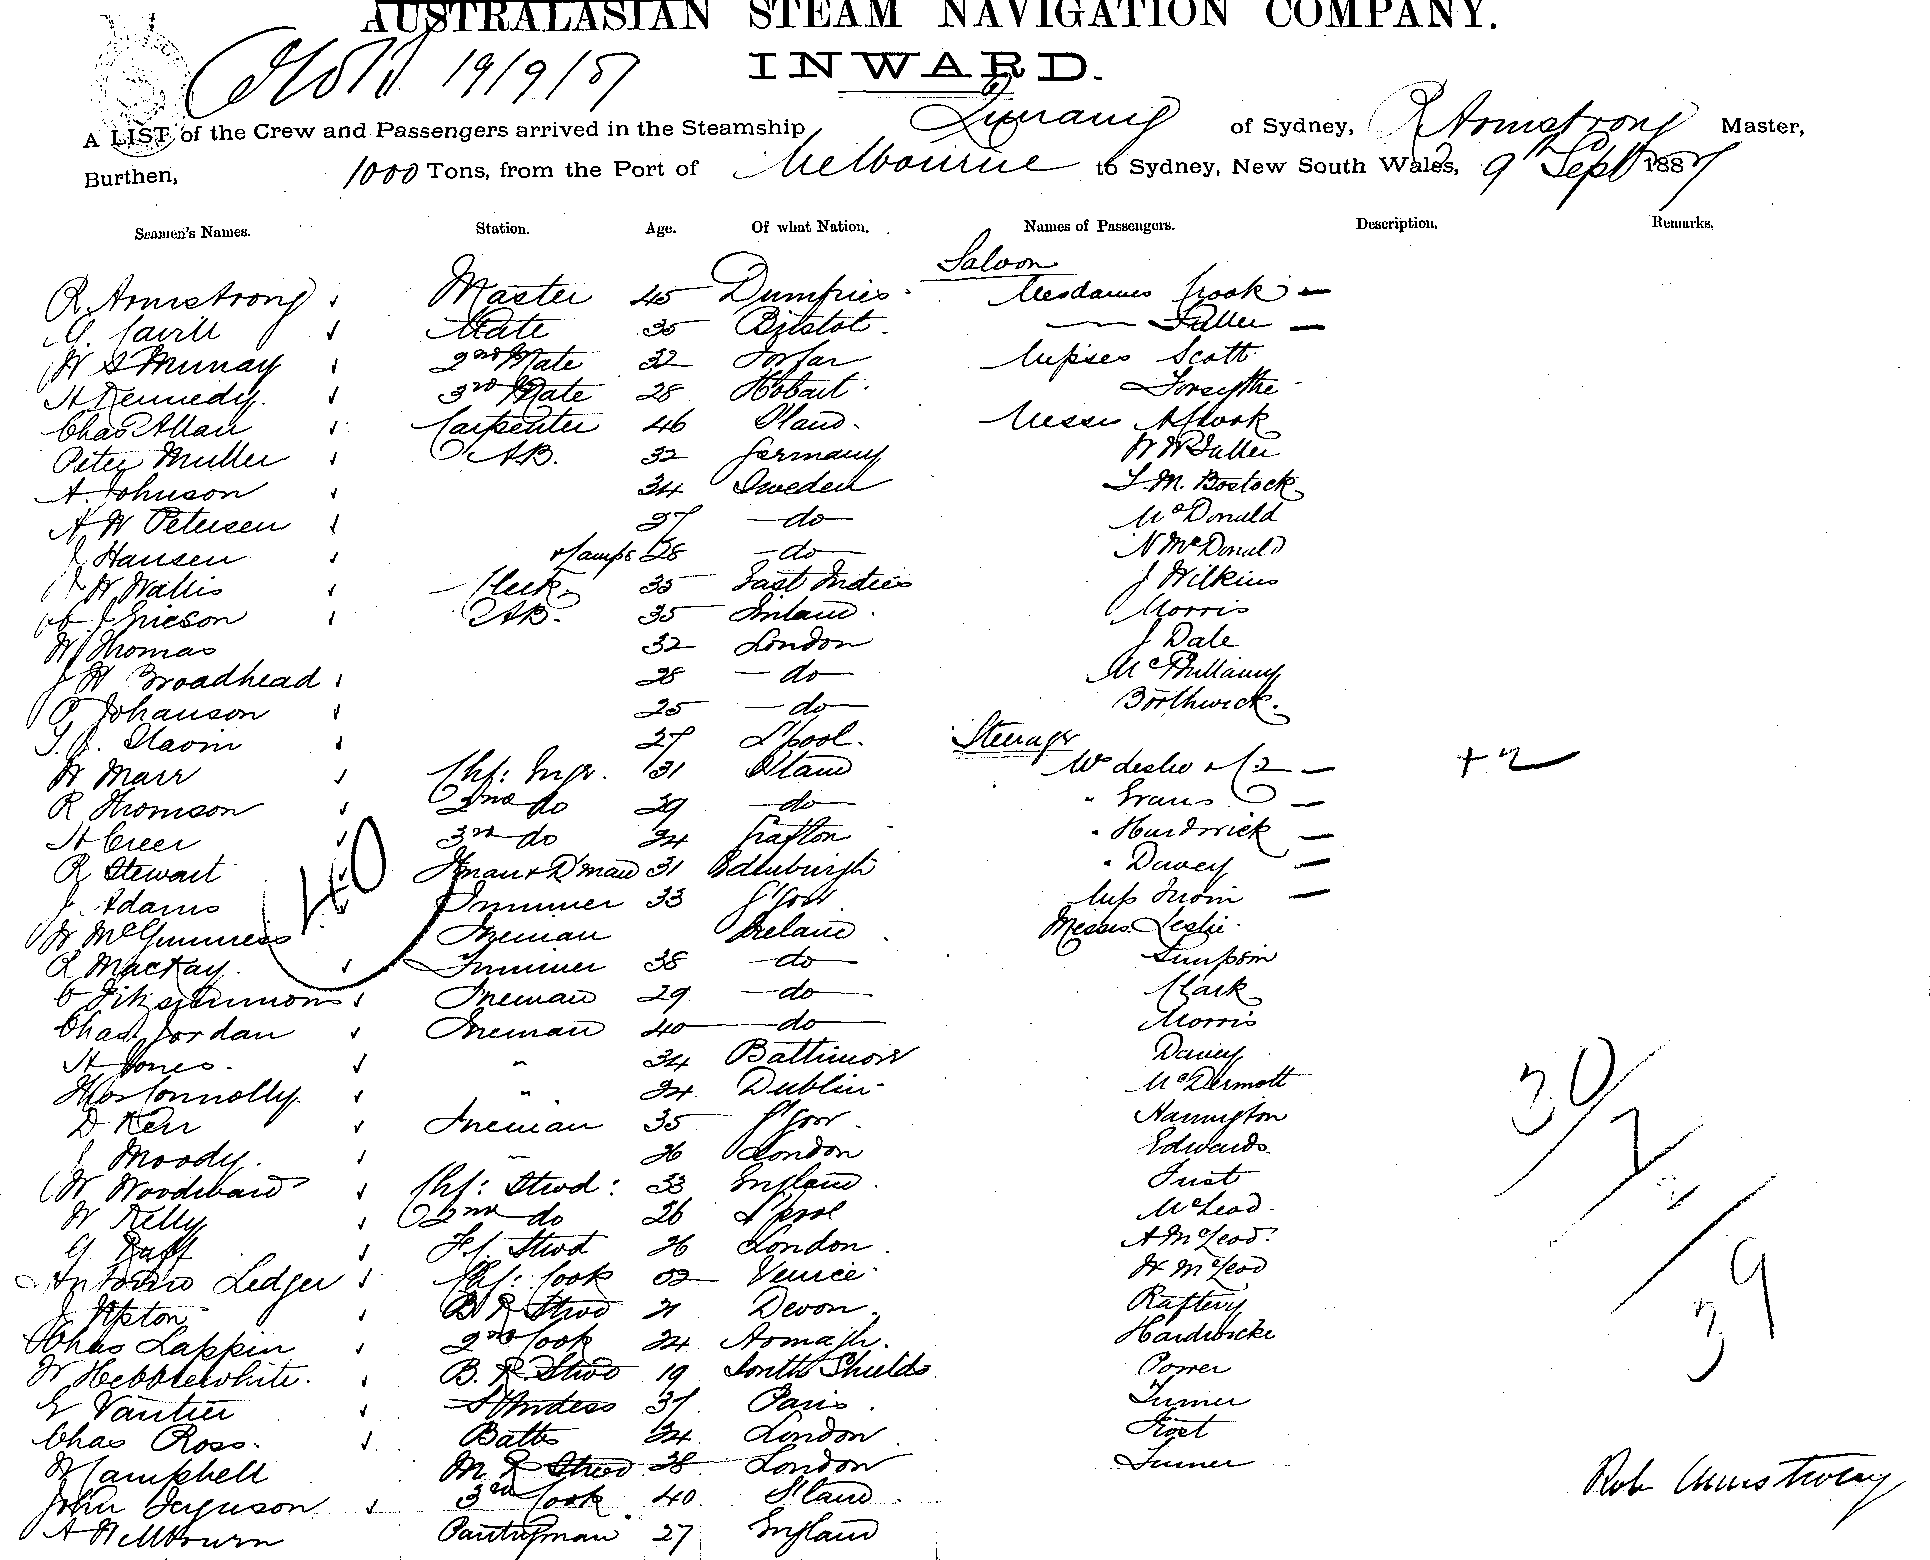 AUSTRALASIAN STEAM NAVIGATION COMPANY.
INWARD.
19/9/87
A LIST of the Crew and Passengers arrived in the Steamship of Sydney, R Armstrong Master,
Burthen, 1000 Tons, from the Port of Melbourne to Sydney, New South Wales, 9th Sept 1887
Seamen's Names. Station. Age. Of what Nation. Names of Passengers. Description. Remarks.
Saloon
R. Armstrong Master 45 Dumfries Mesdames Crook
G. Cavill Mate 35 Bristol Fuller
W S Murray 2nd Mate 32 Forfar Misses Scott
H Kennedy 3rd Mate 28 Hobart Forsythe
Chas Allan Carpenter 46 S'land Messrs A Crook
Peter Muller AB. 32 Germany W W Fuller
A. Johnson 34 Sweden Bostock
A W Petersen 27 do McDonald
J Hansen Lamps 28 do N McDonald
W Wallis Clerk 35 East Indies J Wilkins
AB. 35 Finland Morris
W Thomas 32 London J Dale
J H Broadhead 28 do
P Johanson 25 do Borthwick
27 L'pool Steerage
W Marr Chf: Engr. 31 S'land Mrs Leslie + 2
R Thomson 2nd do 29 do " Evans
H Creer 3rd do 34 Grafton " Hardwick
R Stewart F'man & D'man 31 Edinburgh " Davey
J Adams Trimmer 33 G'gow Miss Irwin
W McGuinness Fireman Ireland Messrs Leslie
R Mackay Trimmer 38 do Simpson
C Fitzsimmons Fireman 29 do Clark
Chas Jordan Fireman 40 do Morris
H Jones " 34 Baltimore Davey
Thos Connolly " 34 Dublin McDermott
D Kerr Fireman 35 G'gow Harrington
J Moody " 26 London Edwards
W Woodward Chf: Stwd: 33 England
W Kelly 2nd do 26 L'pool McLeod
G Raff F.C. Stwd 26 London A McLeod
Antonio Ledger Chf: Cook Venice H McLeod
J Upton B. R Stwd 21 Devon Raftery
Chas Lappin 2nd Cook 24 Armagh Hardwicke
W Hebblewhite B. R. Stwd 19 South Shields Power
E Vautier S'Wdess 37 Paris Turner
Chas Ross Baths 24 London
W Campbell M. R Stwd 28 London Turner
John Ferguson 3rd Cook 40 S'land
A Wellbourn Pantryman 27 England
40
+2
30
7
2
39
Rob Armstrong